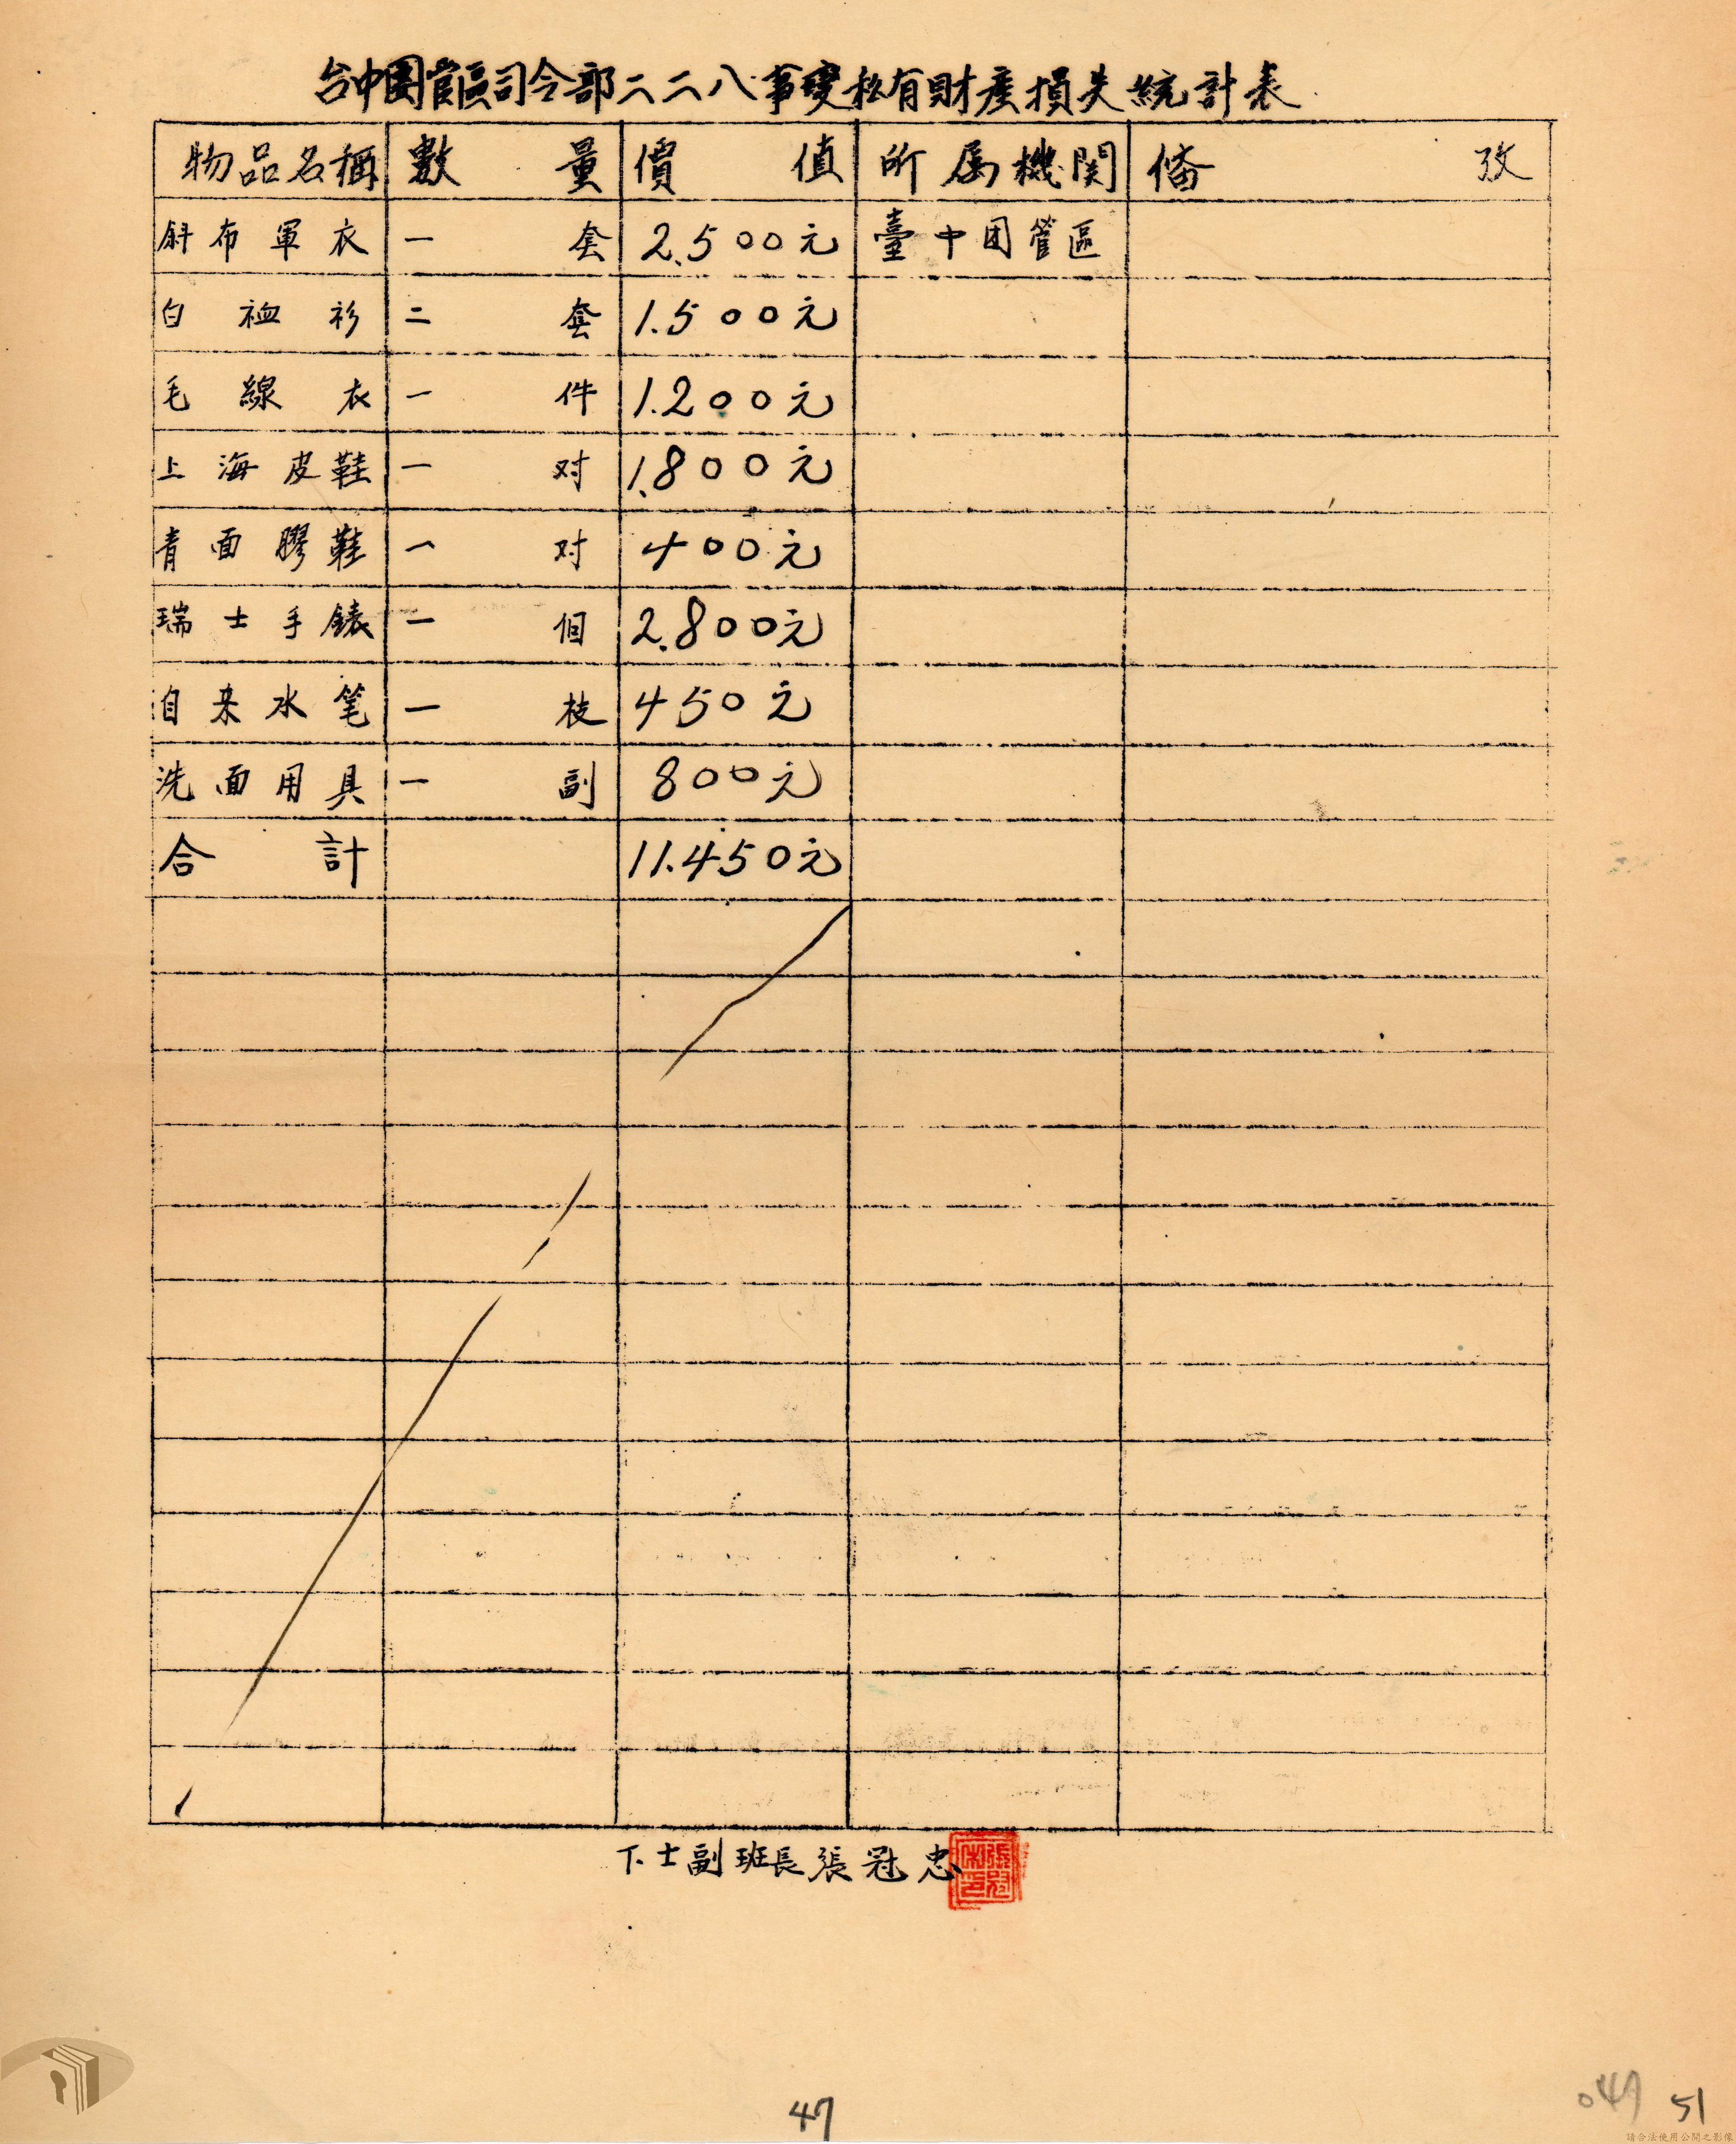 台中團管區司令部二二八事變私有財產損失統計表
物品名稱 數量 價值 所屬機関 俻攷
斜布軍衣 一套 2.500元 臺中团管區
白裇衫 二套 1.500元
毛線衣 一件 1.200元
上海皮鞋 一对 1.800元
青面膠鞋 一对 400元
瑞士手錶 一個 2.800元
自来水笔 一枝 450元
洗面用具 一副 800元
合計 11.450元
下士副班長張冠忠
47
047 51
請合法使用公開之影像